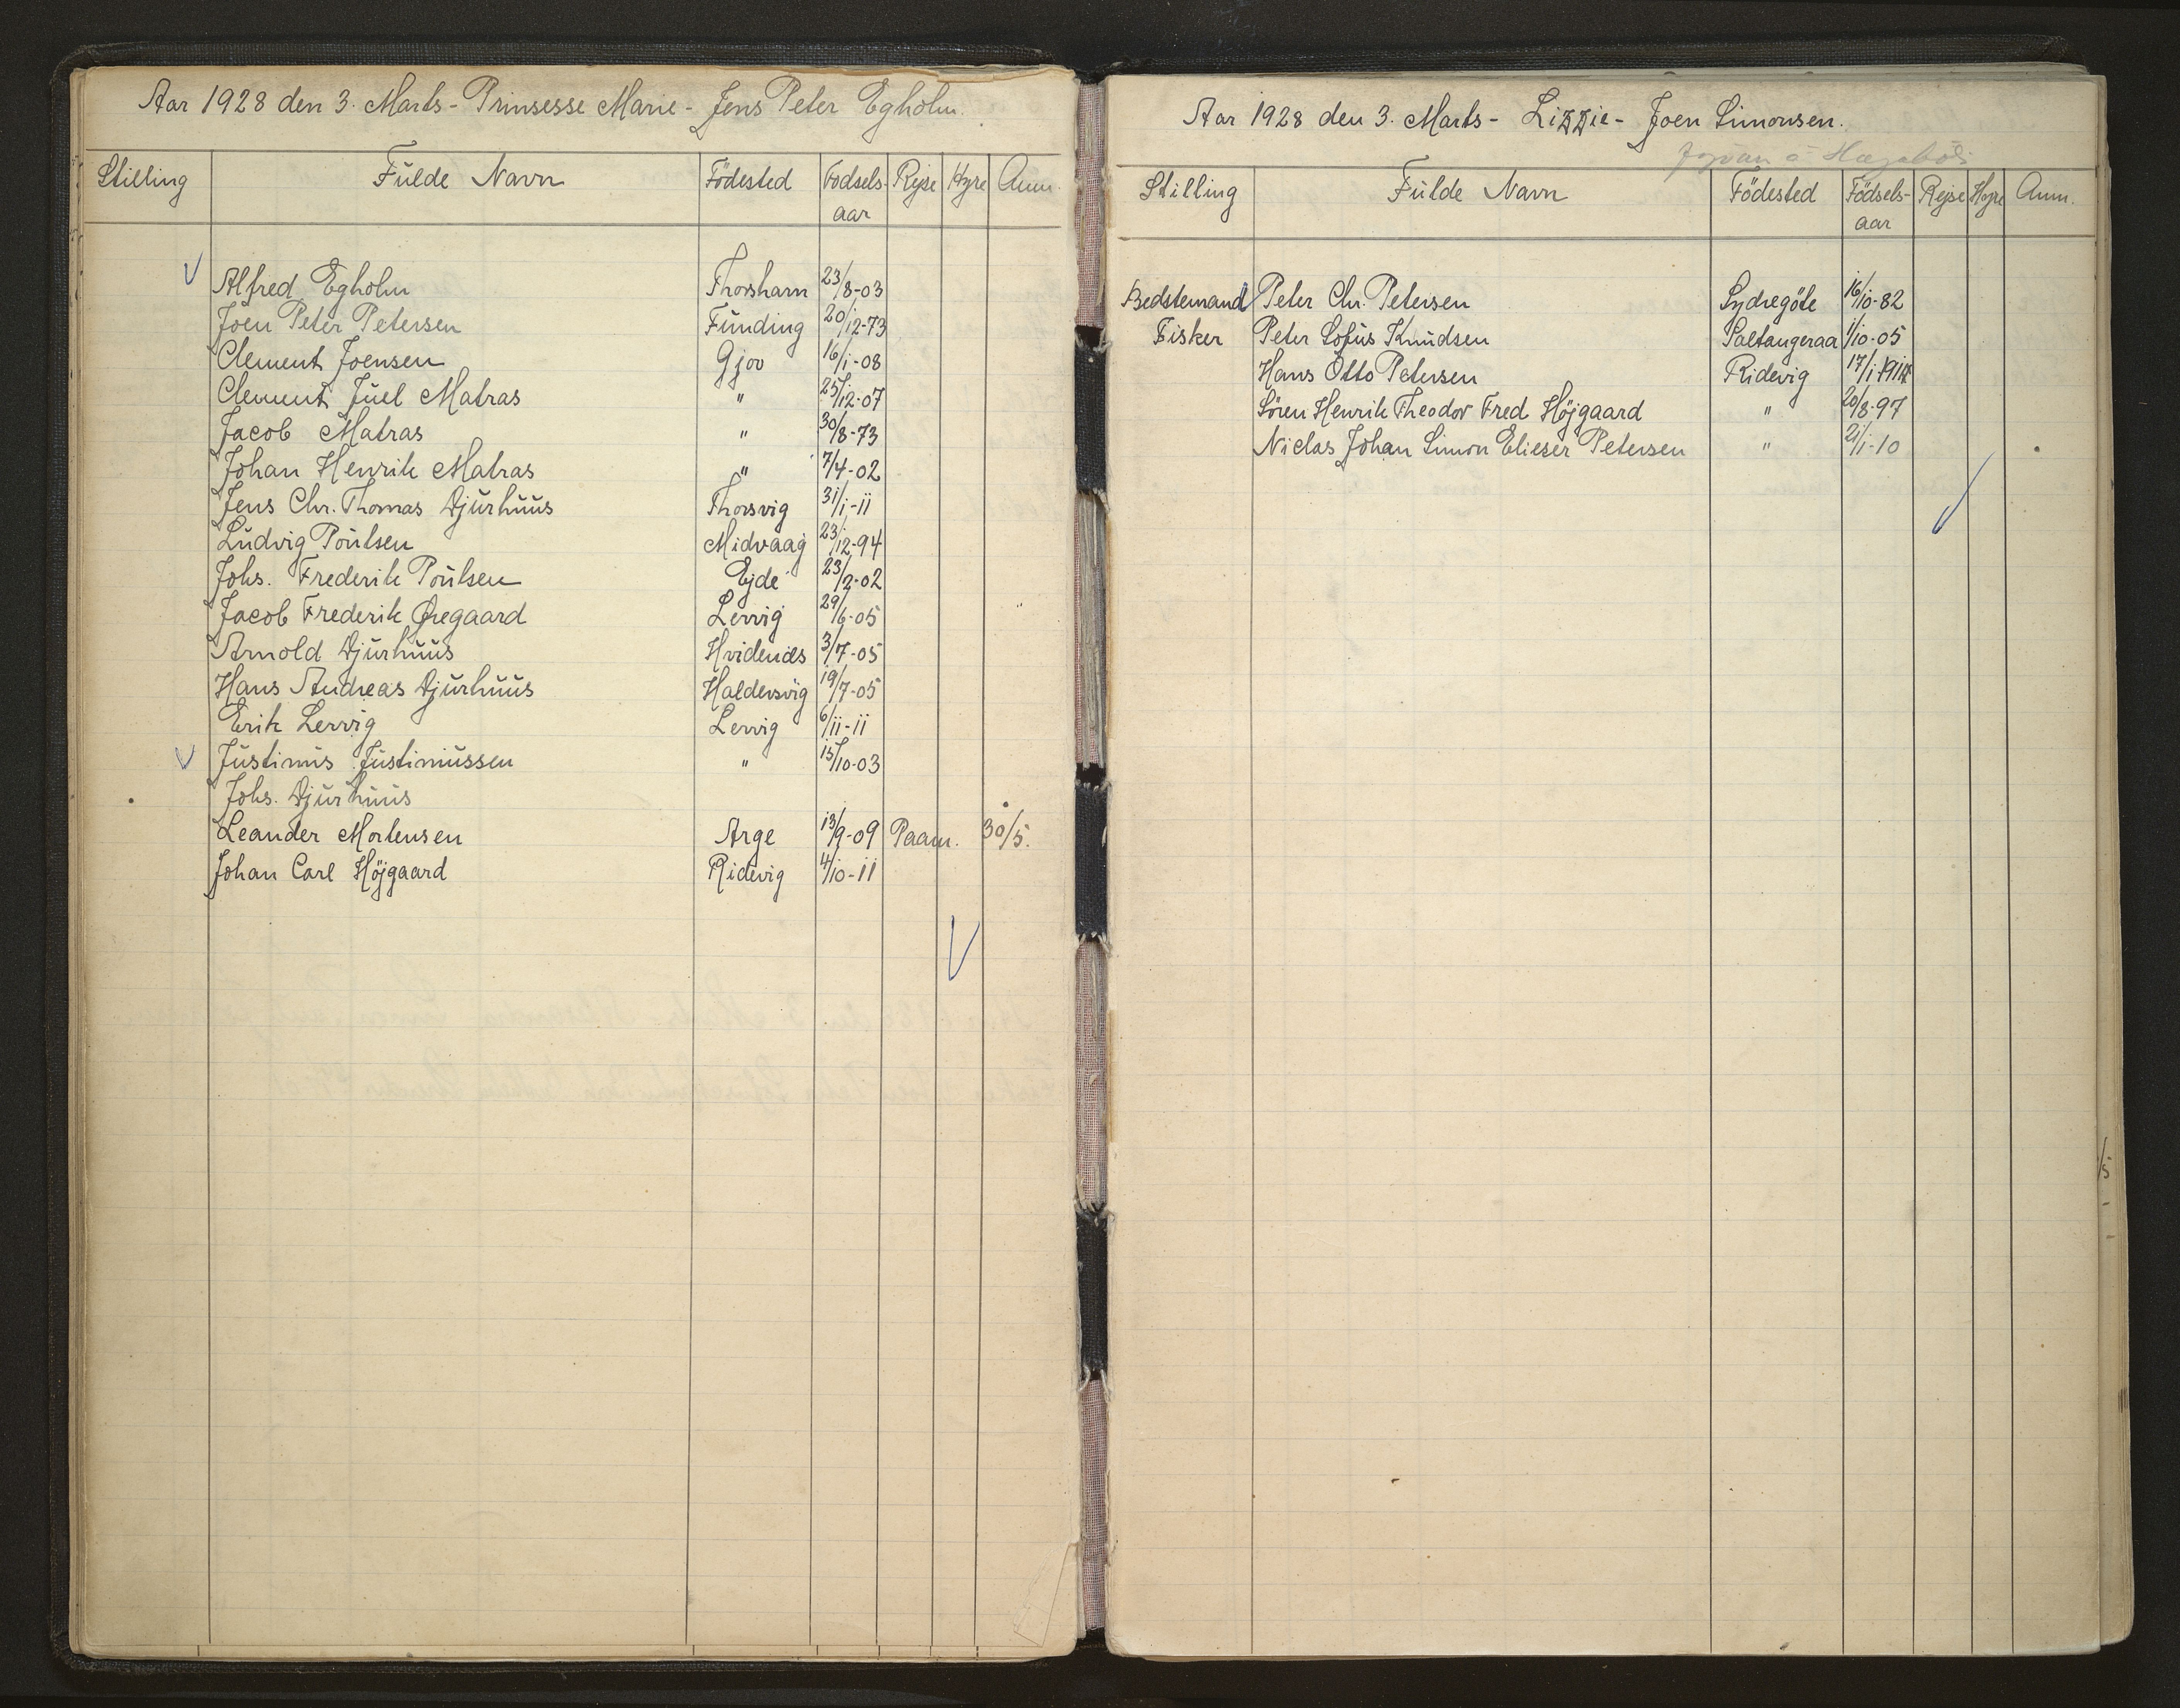 Aar 1928 den 3. Marts - Prinsesse Marie - Jens Peter Egholm.
Stilling Fulde Navn Födested Födsels- Rejse Hyre Anm.
aar
Alfred Egholm Thorshavn 23/8-03
Joen Peter Petersen Funding 20/12-73
Clement Joensen Gjov 16/1-08
Clement Juel Matras " 25/12-07
Jacob Matras " 30/8-73
Johan Henrik Matras " 7/4-02
Jens Chr. Thomas Djurhuus Thorsvig 31/1-11
Ludvig Poulsen Midvaag 23/12-94
Johs. Frederik Poulsen Ejde 23/2-02
Jacob Frederik Øregaard Lervig 29/6-05
Arnold Djurhuus Hvidenæs 3/7-05
Hans Andreas Djurhuus Haldersvig 19/7-05
Erik Lervig Lervig 6/11-11
Justinus Justinussen " 15/10-03
Johs. Djurhuus
Leander Mortensen Arge 13/9-09 Paam. 30/5.
Johan Carl Höjgaard Ridevig 4/10-11
Aar 1928 den 3. Marts - Lizzie - Joen Simonsen.
Stilling Fulde Navn Födested Födsels- Rejse Hyre Anm.
aar
Bedstemand Peter Chr. Petersen Sydregöte 16/10-82
Fisker Peter Sofus Knudsen Saltangeraa 1/10-05
Hans Otto Petersen Ridevig 17/1-
Sören Henrik Theodor Fred Höjgaard " 20/8-97
Niclas Johan Simon Elieser Petersen " 21/1-10